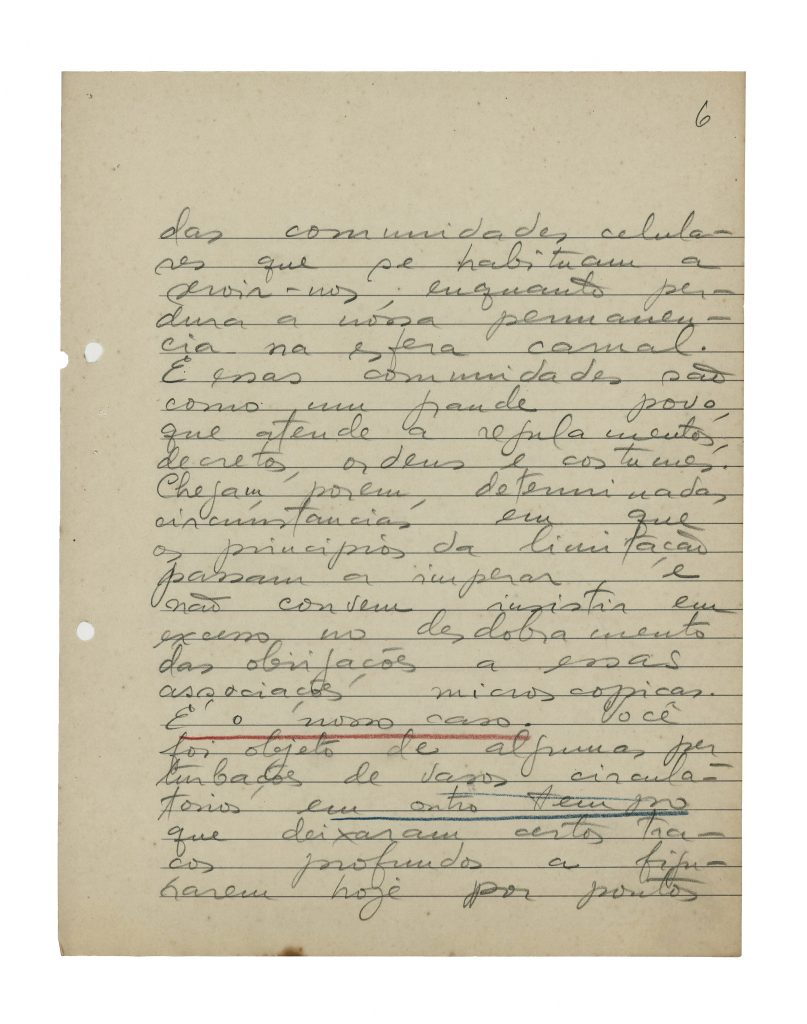 6
das comunidades celula-
res que se habituam a
servir-nos, enquanto per-
dura a nóssa permanen-
cia na esfera carnal.
E essas comunidades são
como um grande povo,
que atende a regulamentos,
decretos, ordens e costumes.
Chegam, porem, determinadas
circunstancias em que
os principios da limitação
passam a imperar, e
não convem insistir em
excesso no desdobramento
das obrigações a essas
associações microscopicas.
É o nosso caso. Você
foi objeto de algumas per
turbações de vasos circula-
torios em outro tempo
que deixaram certos tra-
cos profundos a figu-
rarem hoje por pontos